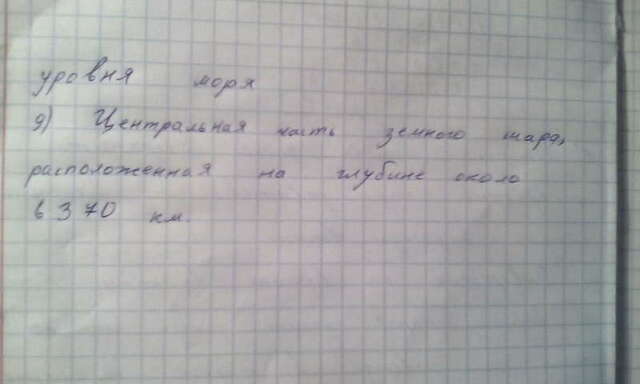 уровня моря
9) Центральная часть земного шара,
расположенная на глубине около
6370 км.